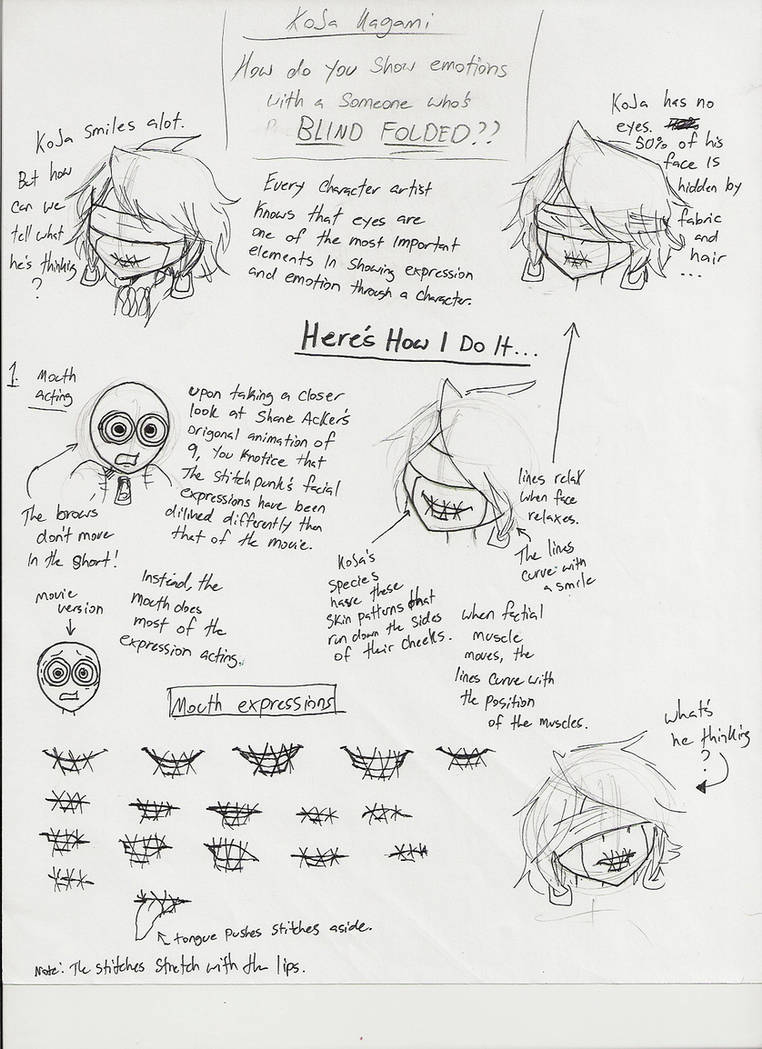 KoJa Kagami
How do you show emotions
with a someone who's
BLIND FOLDED??
KoJa smiles alot.
But how
can we
tell what
he's thinking
?
Every character artist
knows that eyes are
one of the most important
elements in showing expression
and emotion through a character.
KoJa has no
eyes.
50% of his
face is
hidden by
fabric
and
hair
...
Here's How I Do It...
1. Mouth
acting
Upon taking a closer
look at Shane Acker's
origonal animation of
9, you knotice that
the stitchpunk's facial
expressions have been
dilived differently than
that of the movie.
The brows
don't move
in the short!
Instead, the
mouth does
most of the
expression acting.
movie
version
KoJa's
species
have these
skin patterns that
run down the sides
of their cheeks.
lines relax
when face
relaxes.
The lines
curve with
a smile
when facial
muscle
moves, the
lines curve with
the position
of the muscles.
Mouth expressions
what's
he thinking
?
tongue pushes stitches aside.
Note: The stitches stretch with the lips.